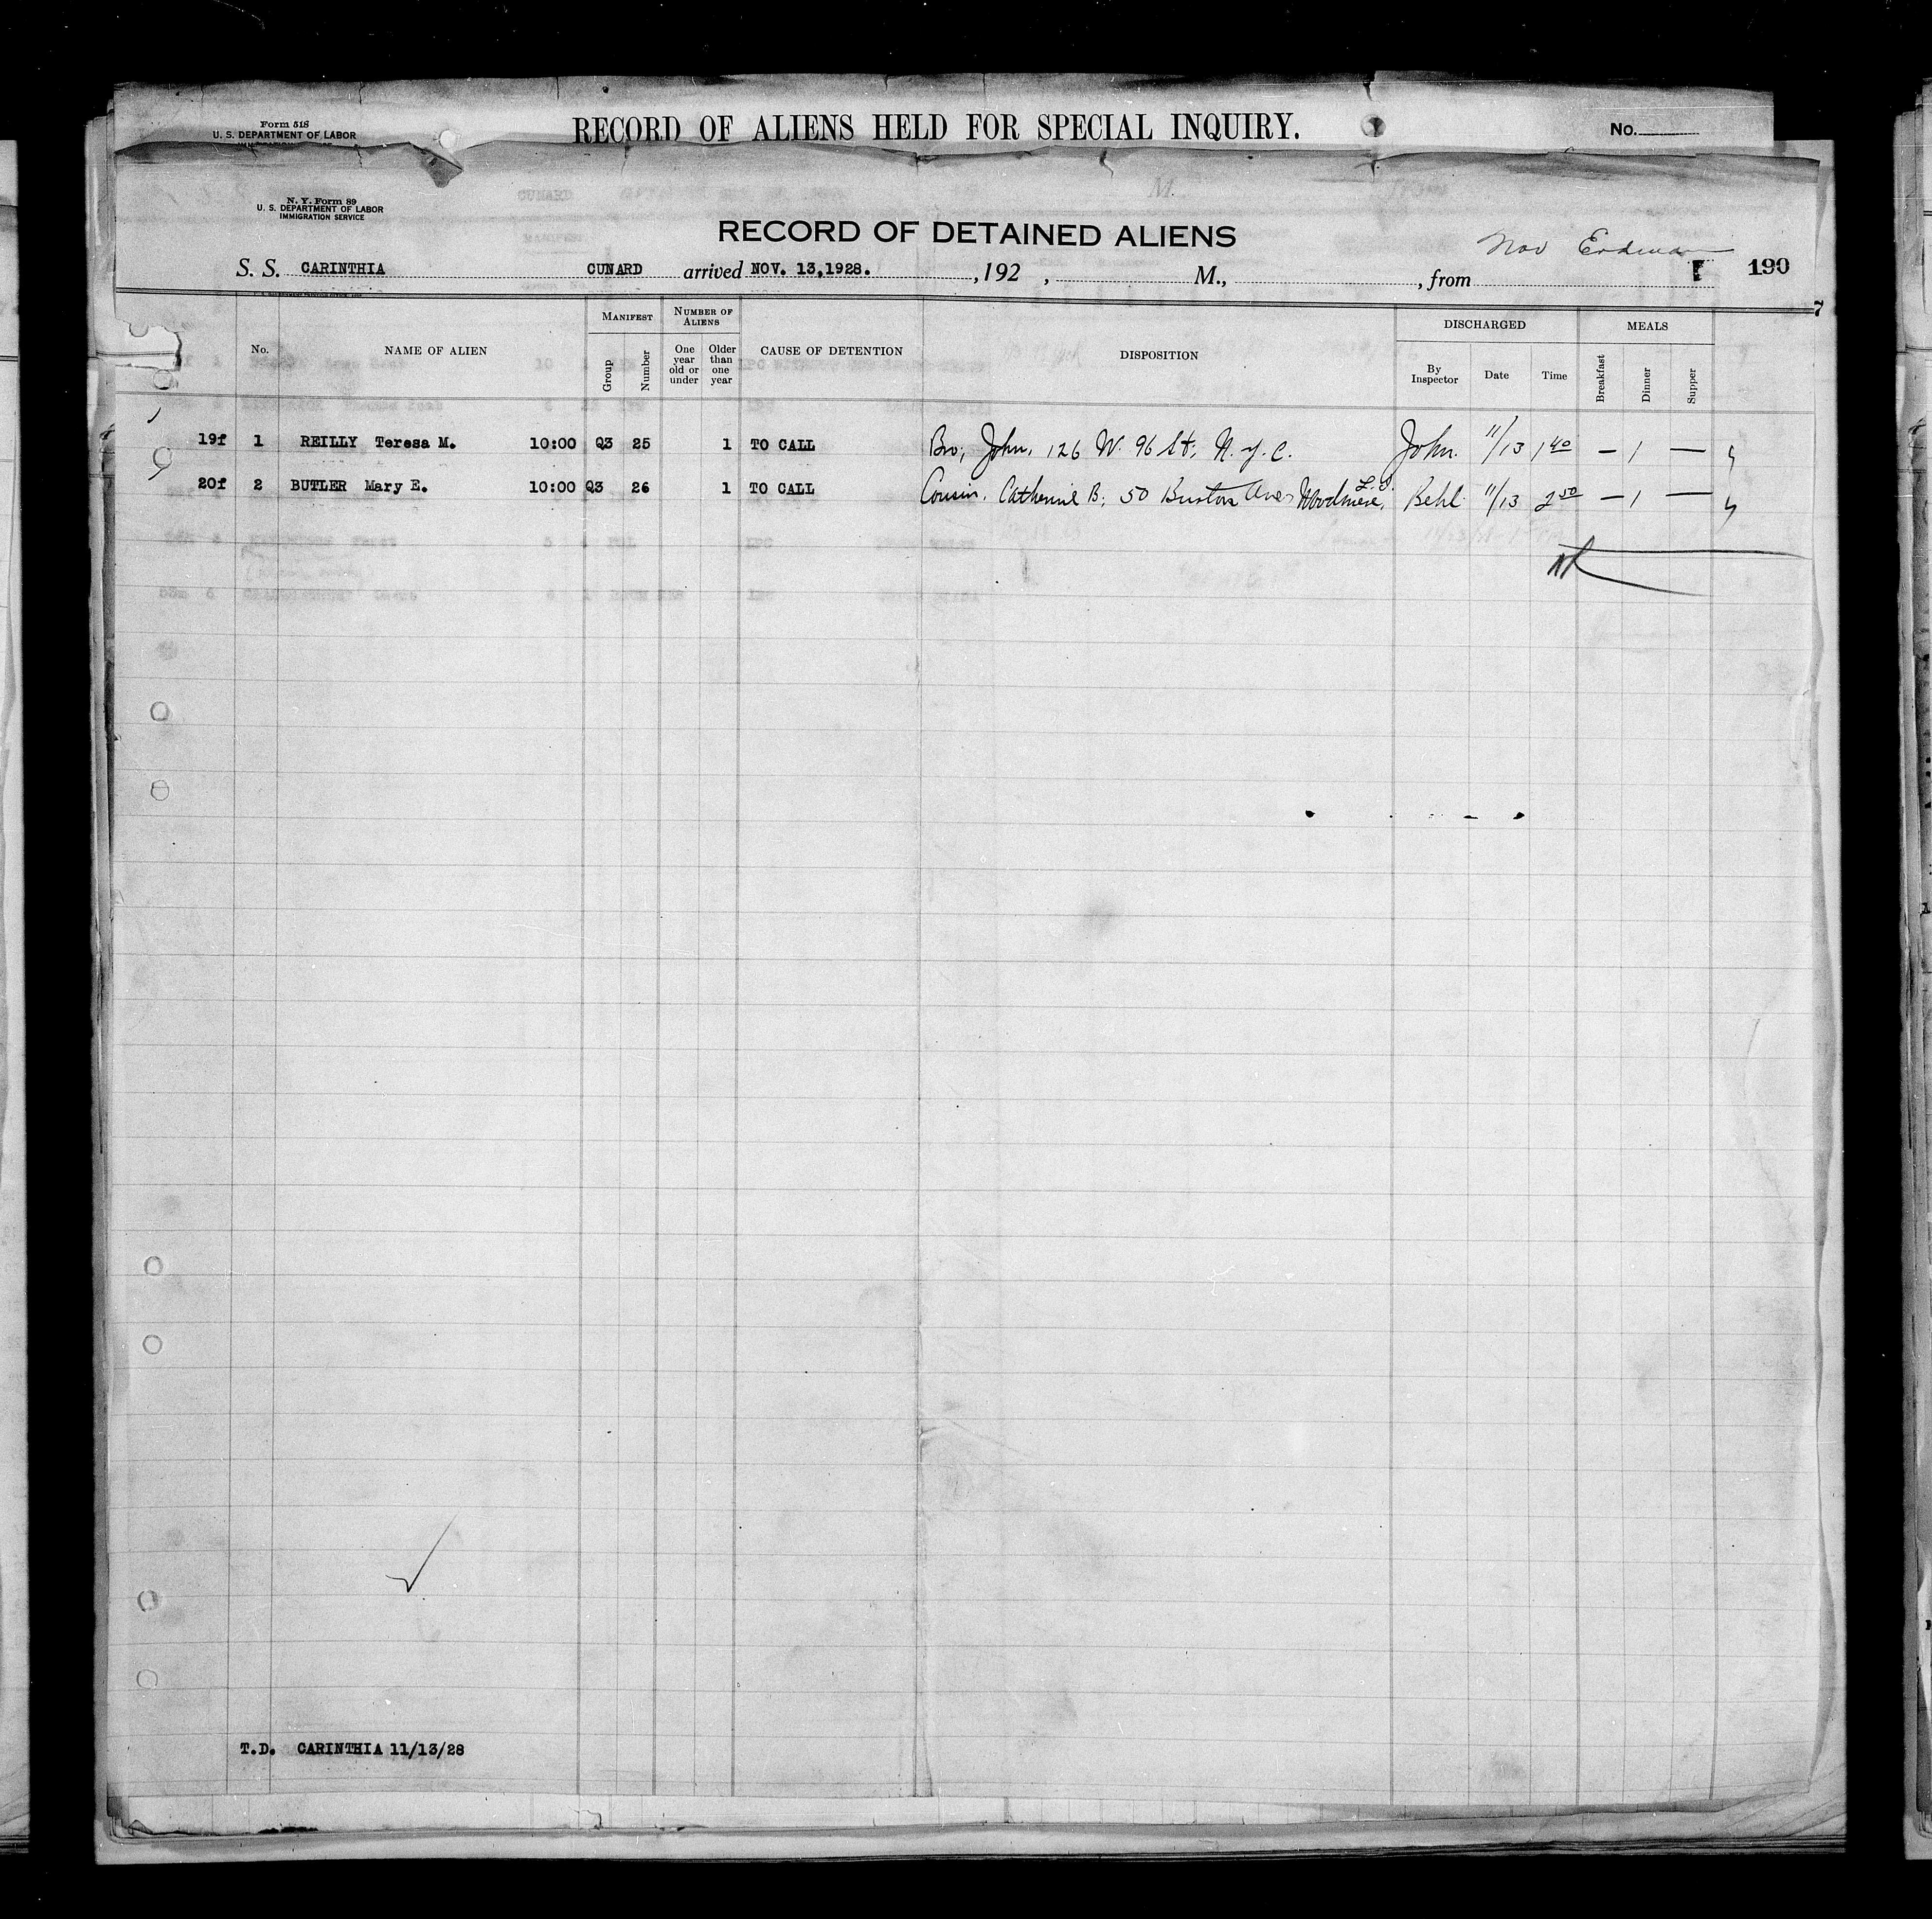 Form 518
U. S. DEPARTMENT OF LABOR
RECORD OF ALIENS HELD FOR SPECIAL INQUIRY.
No.
N. Y. Form 89
U. S. DEPARTMENT OF LABOR
IMMIGRATION SERVICE
RECORD OF DETAINED ALIENS
S. S. CARINTHIA CUNARD arrived NOV. 13,1928. , 192 , M., , from 190
No. NAME OF ALIEN MANIFEST Group Number NUMBER OF ALIENS One year old or under Older than one year CAUSE OF DETENTION DISPOSITION DISCHARGED By Inspector Date Time MEALS Breakfast Dinner Supper
19f 1 REILLY Teresa M. 10:00 Q3 25 1 TO CALL Bro, John, 126 W. 96 St, N.Y.C. John. 11/13 1 40 — 1 —
20f 2 BUTLER Mary E. 10:00 Q3 26 1 TO CALL Cousin, Catherine B, 50 Burton Ave Woodmere, L.I. Behl 11/13 2 50 — 1 —
T.D. CARINTHIA 11/13/28